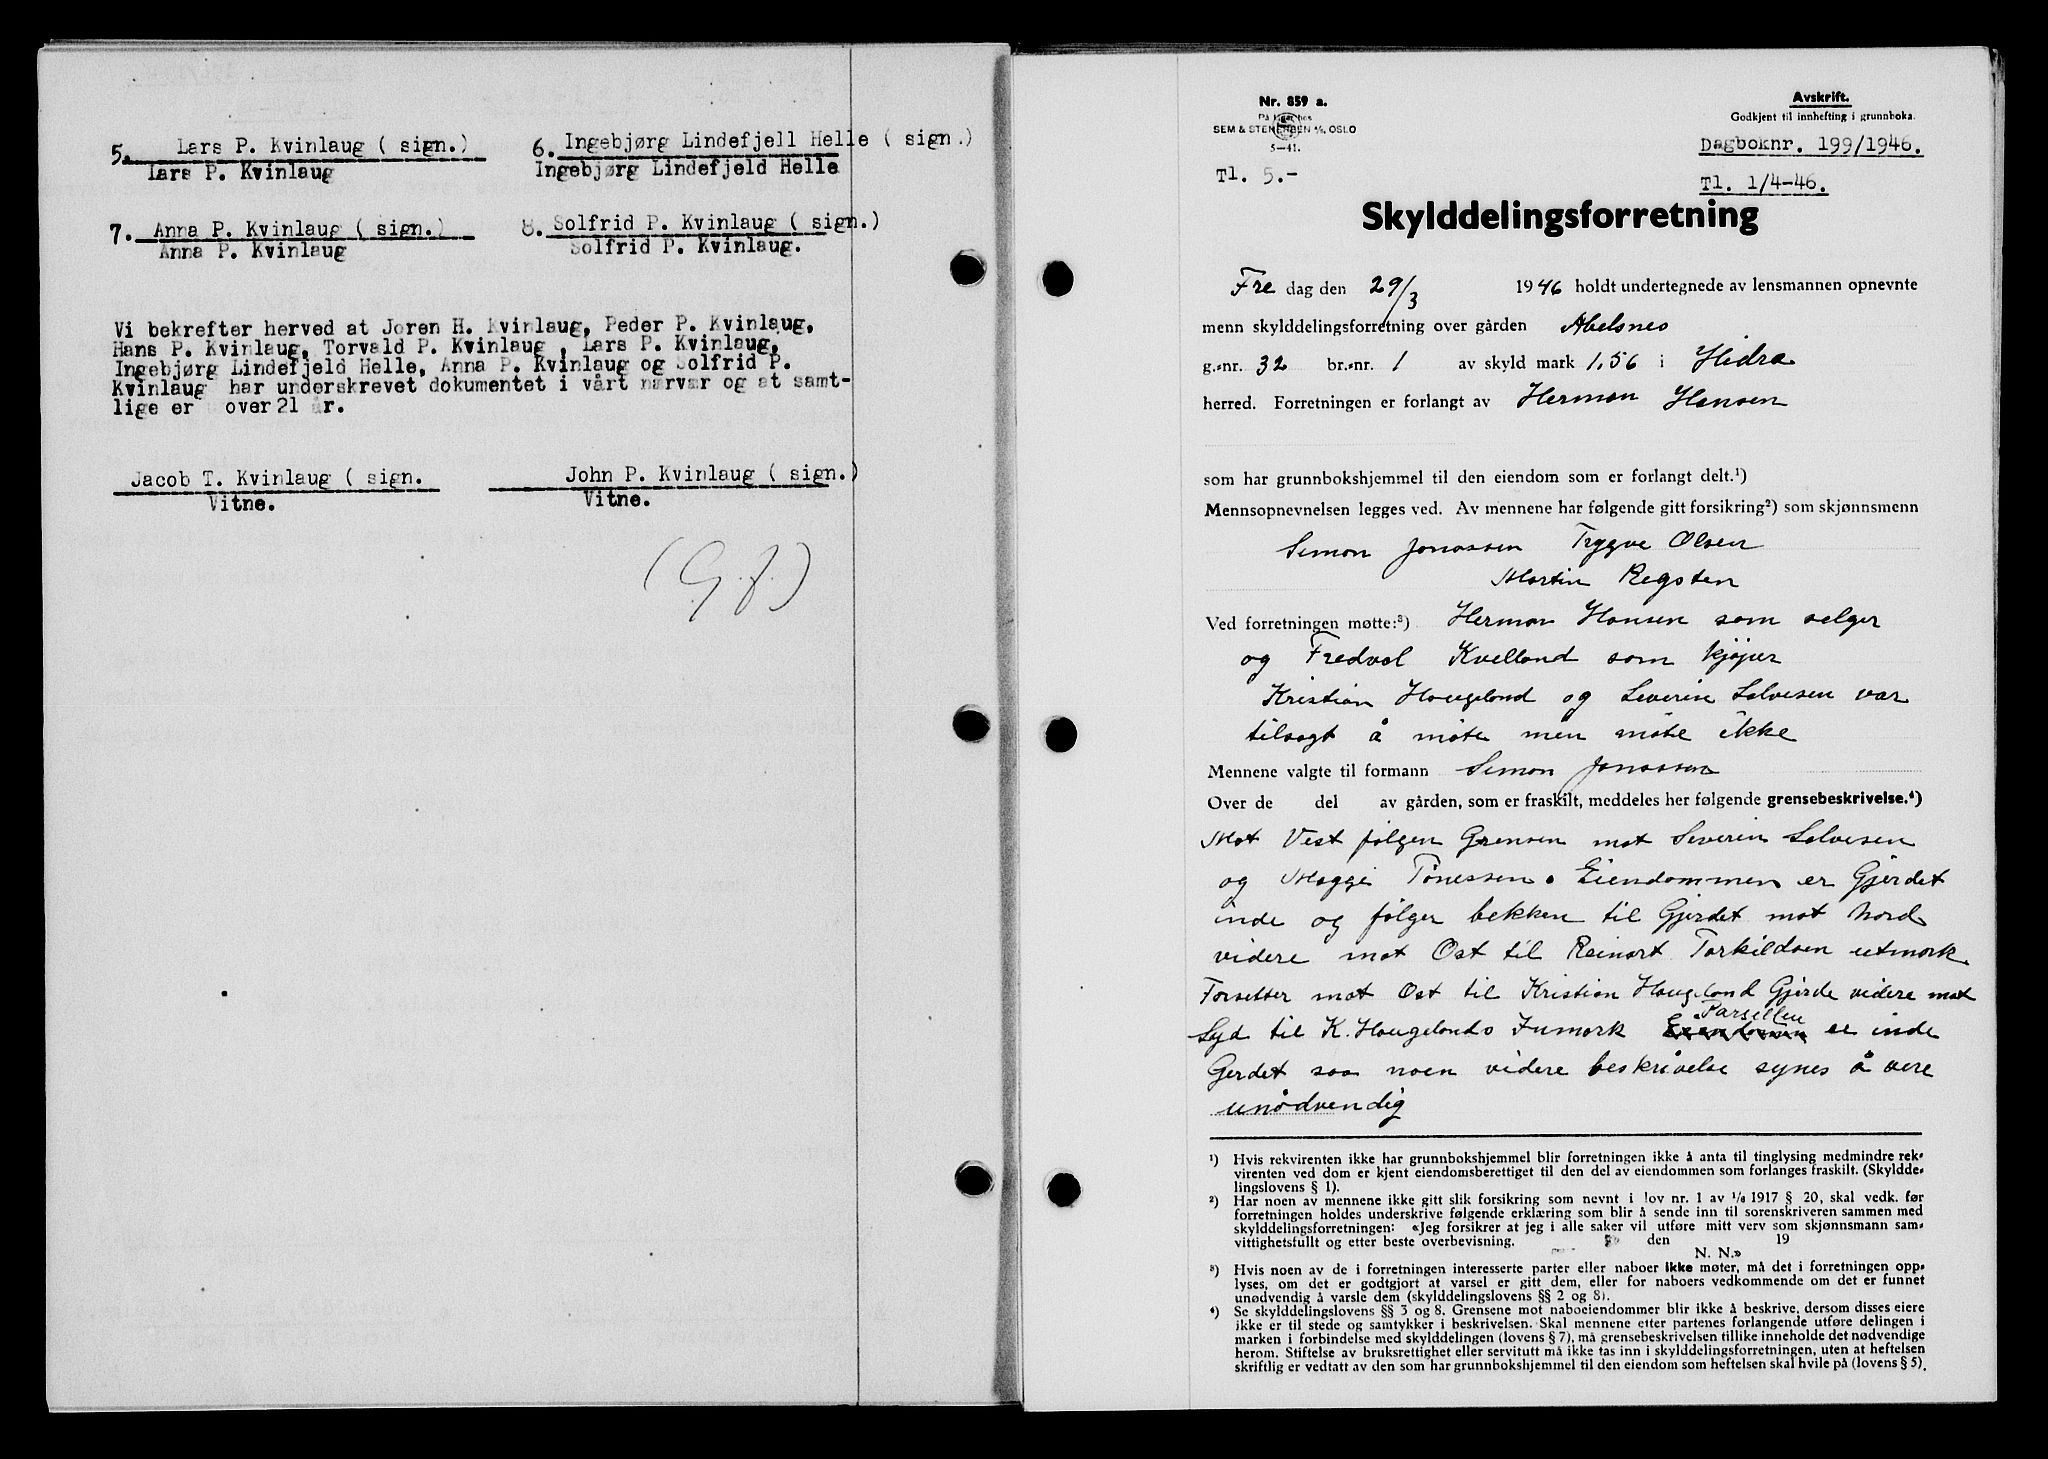 5. Lars P. Kvinlaug ( sign.)
Lars P. Kvinlaug
6. Ingebjørg Lindefjell Helle ( sign.)
Ingebjørg Lindefjeld Helle
7. Anna P. Kvinlaug ( sign.)
Anna P. Kvinlaug
8. Solfrid P. Kvinlaug ( sign.)
Solfrid P. Kvinlaug.
Vi bekrefter herved at Joren H. Kvinlaug, Peder P. Kvinlaug,
Hans P. Kvinlaug, Torvald P. Kvinlaug , Lars P. Kvinlaug,
Ingebjørg Lindefjeld Helle, Anna P. Kvinlaug og Solfrid P.
Kvinlaug har underskrevet dokumentet i vårt nærvær og at samt-
lige er over 21 år.
Jacob T. Kvinlaug ( sign.
Vitne.
John P. Kvinlaug ( sign.)
Vitne.
(G.f.)
Nr. 859 a.
På lager hos
SEM & STENERSEN A/S, OSLO
5—41.
Tl. 5.-
Avskrift.
Godkjent til innhefting i grunnboka.
Dagboknr. 199/1946.
Tl. 1/4-46.
Skylddelingsforretning
Fre dag den 29/3 1946 holdt undertegnede av lensmannen opnevnte
menn skylddelingsforretning over gården Abelsnes
g.-nr. 32 br.-nr. 1 av skyld mark 1,56 i Hidra
herred. Forretningen er forlangt av Herman Hansen
som har grunnbokshjemmel til den eiendom som er forlangt delt.¹)
Mennsopnevnelsen legges ved. Av mennene har følgende gitt forsikring²) som skjønnsmenn
Simon Jonassen Trygve Olsen
Martin Regsten
Ved forretningen møtte:³) Herman Hansen som selger
og Fredval Kvelland som kjøper
Kristian Haugeland og Severin Salvesen var
tilsagt å møte men møte ikke
Mennene valgte til formann Simon Jonassen
Over de del av gården, som er fraskilt, meddeles her følgende grensebeskrivelse.⁴)
Mot Vest følgen Grensen mot Severin Salvesen
og Maggi Tønessen. Eiendommen er Gjerdet
inde og følger bekken til Gjerdet mot Nord
videre mot Ost til Reinart Tarkildsen utmark
Forsetter mot Ost til Kristian Haugeland Gjerde videre mot
Syd til K. Haugelands Inmark Parsellen er inde
Gerdet saa noen videre beskrivelse synes å vere
unødvendig
¹) Hvis rekvirenten ikke har grunnbokshjemmel blir forretningen ikke å anta til tinglysing medmindre rek-
virenten ved dom er kjent eiendomsberettiget til den del av eiendommen som forlanges fraskilt. (Skyldde-
lingslovens § 1).
²) Har noen av mennene ikke gitt slik forsikring som nevnt i lov nr. 1 av 1/6 1917 § 20, skal vedk. før
forretningen holdes underskrive følgende erklæring som blir å sende inn til sorenskriveren sammen med
skylddelingsforretningen: «Jeg forsikrer at jeg i alle saker vil utføre mitt verv som skjønnsmann sam-
vittighetsfullt og etter beste overbevisning. den 19
N. N.»
³) Hvis noen av de i forretningen interesserte parter eller naboer ikke møter, må det i forretningen opp-
lyses, om det er godtgjort at varsel er gitt dem, eller for naboers vedkommende om det er funnet
unødvendig å varsle dem (skylddelingslovens §§ 2 og 8).
⁴) Se skylddelingslovens §§ 3 og 8. Grensene mot naboeiendommer blir ikke å beskrive, dersom disses eiere
ikke er til stede og samtykker i beskrivelsen. Skal mennene etter partenes forlangende utføre delingen i
marken i forbindelse med skylddelingen (lovens § 7), må grensebeskrivelsen tillike inneholde det nødvendige
herom. Stiftelse av bruksrettighet eller servitutt må ikke tas inn i skylddelingsforretningen, uten at heftelsen
skriftlig er vedtatt av den som har grunnbokshjemmel til den eiendom som heftelsen skal hvile på (lovens § 5).